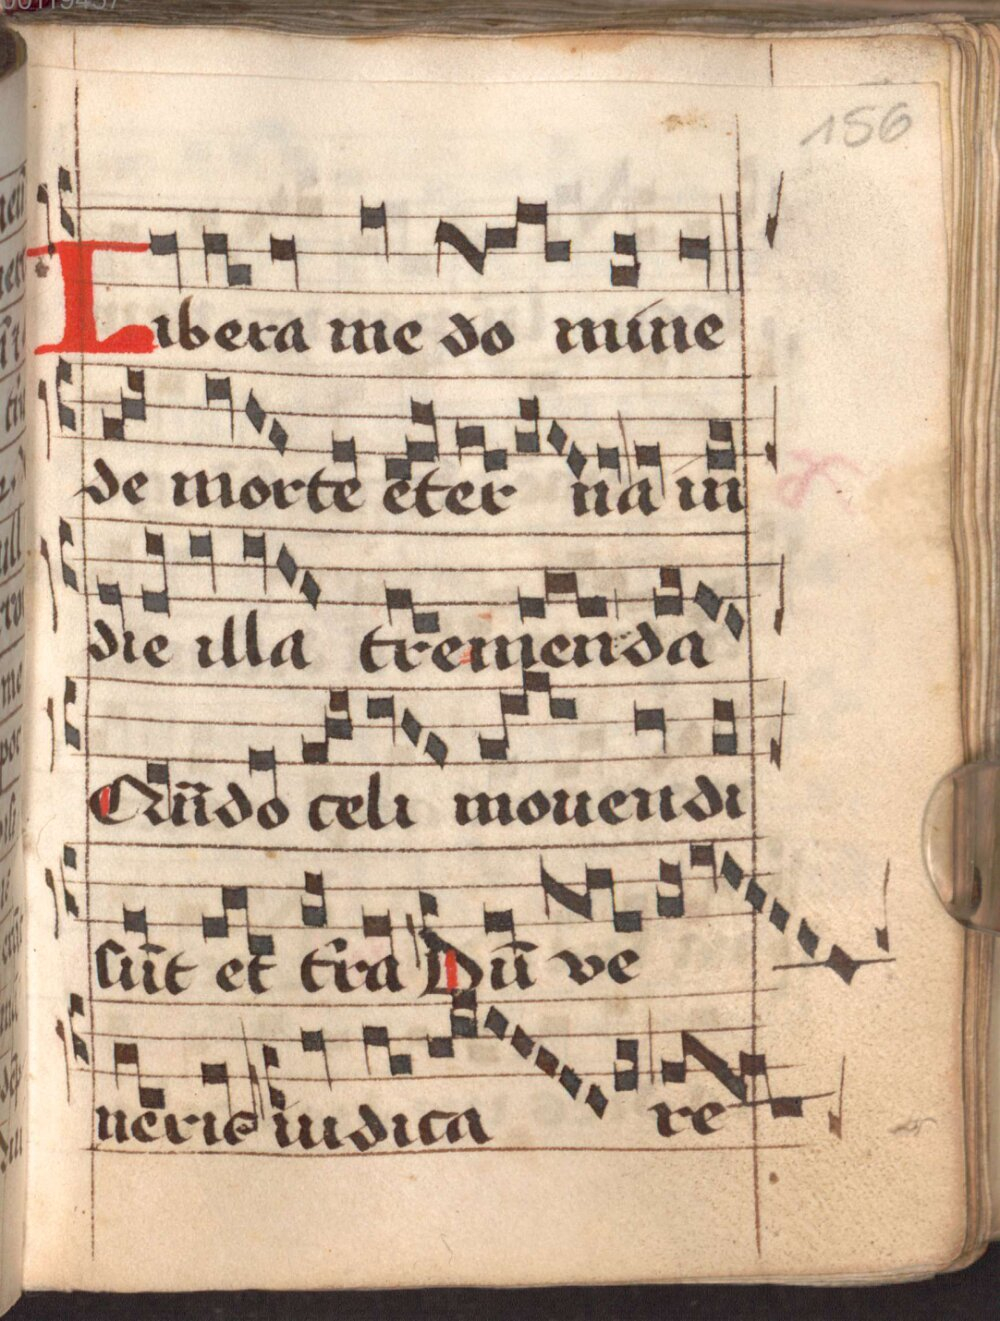 156
Libera me do mine
de morte eter na in
die illa tremenda
Qūdo celi mouendi
sūt et t̄ra Dū ve
neris iudica re